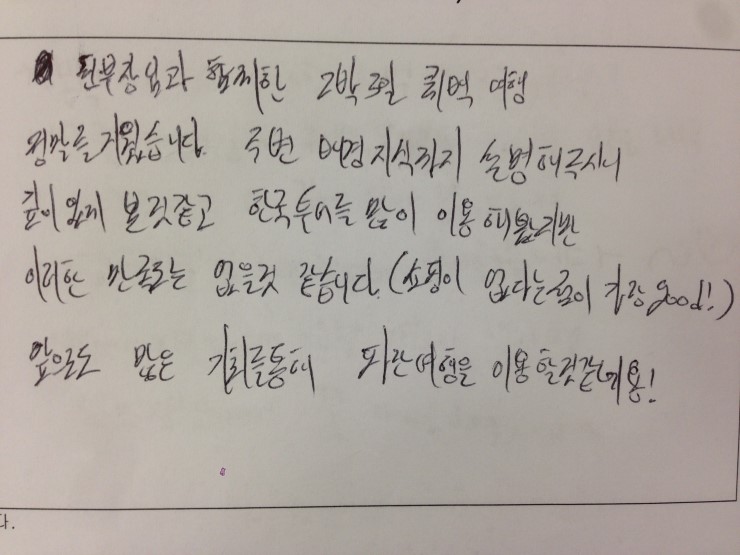 전부장님과 함께한 2박 3일 퀘벡 여행
정말 즐거웠습니다. 주변 배경지식까지 설명해주시니
깊이있게 본것같고 한국투어를 많이 이용해봤지만
이러한 만족도는 없을것 같습니다. (쇼핑이 없다는점이 가장 good!)
앞으로도 많은 기회를통해 파란여행을 이용할것같네용!
다.